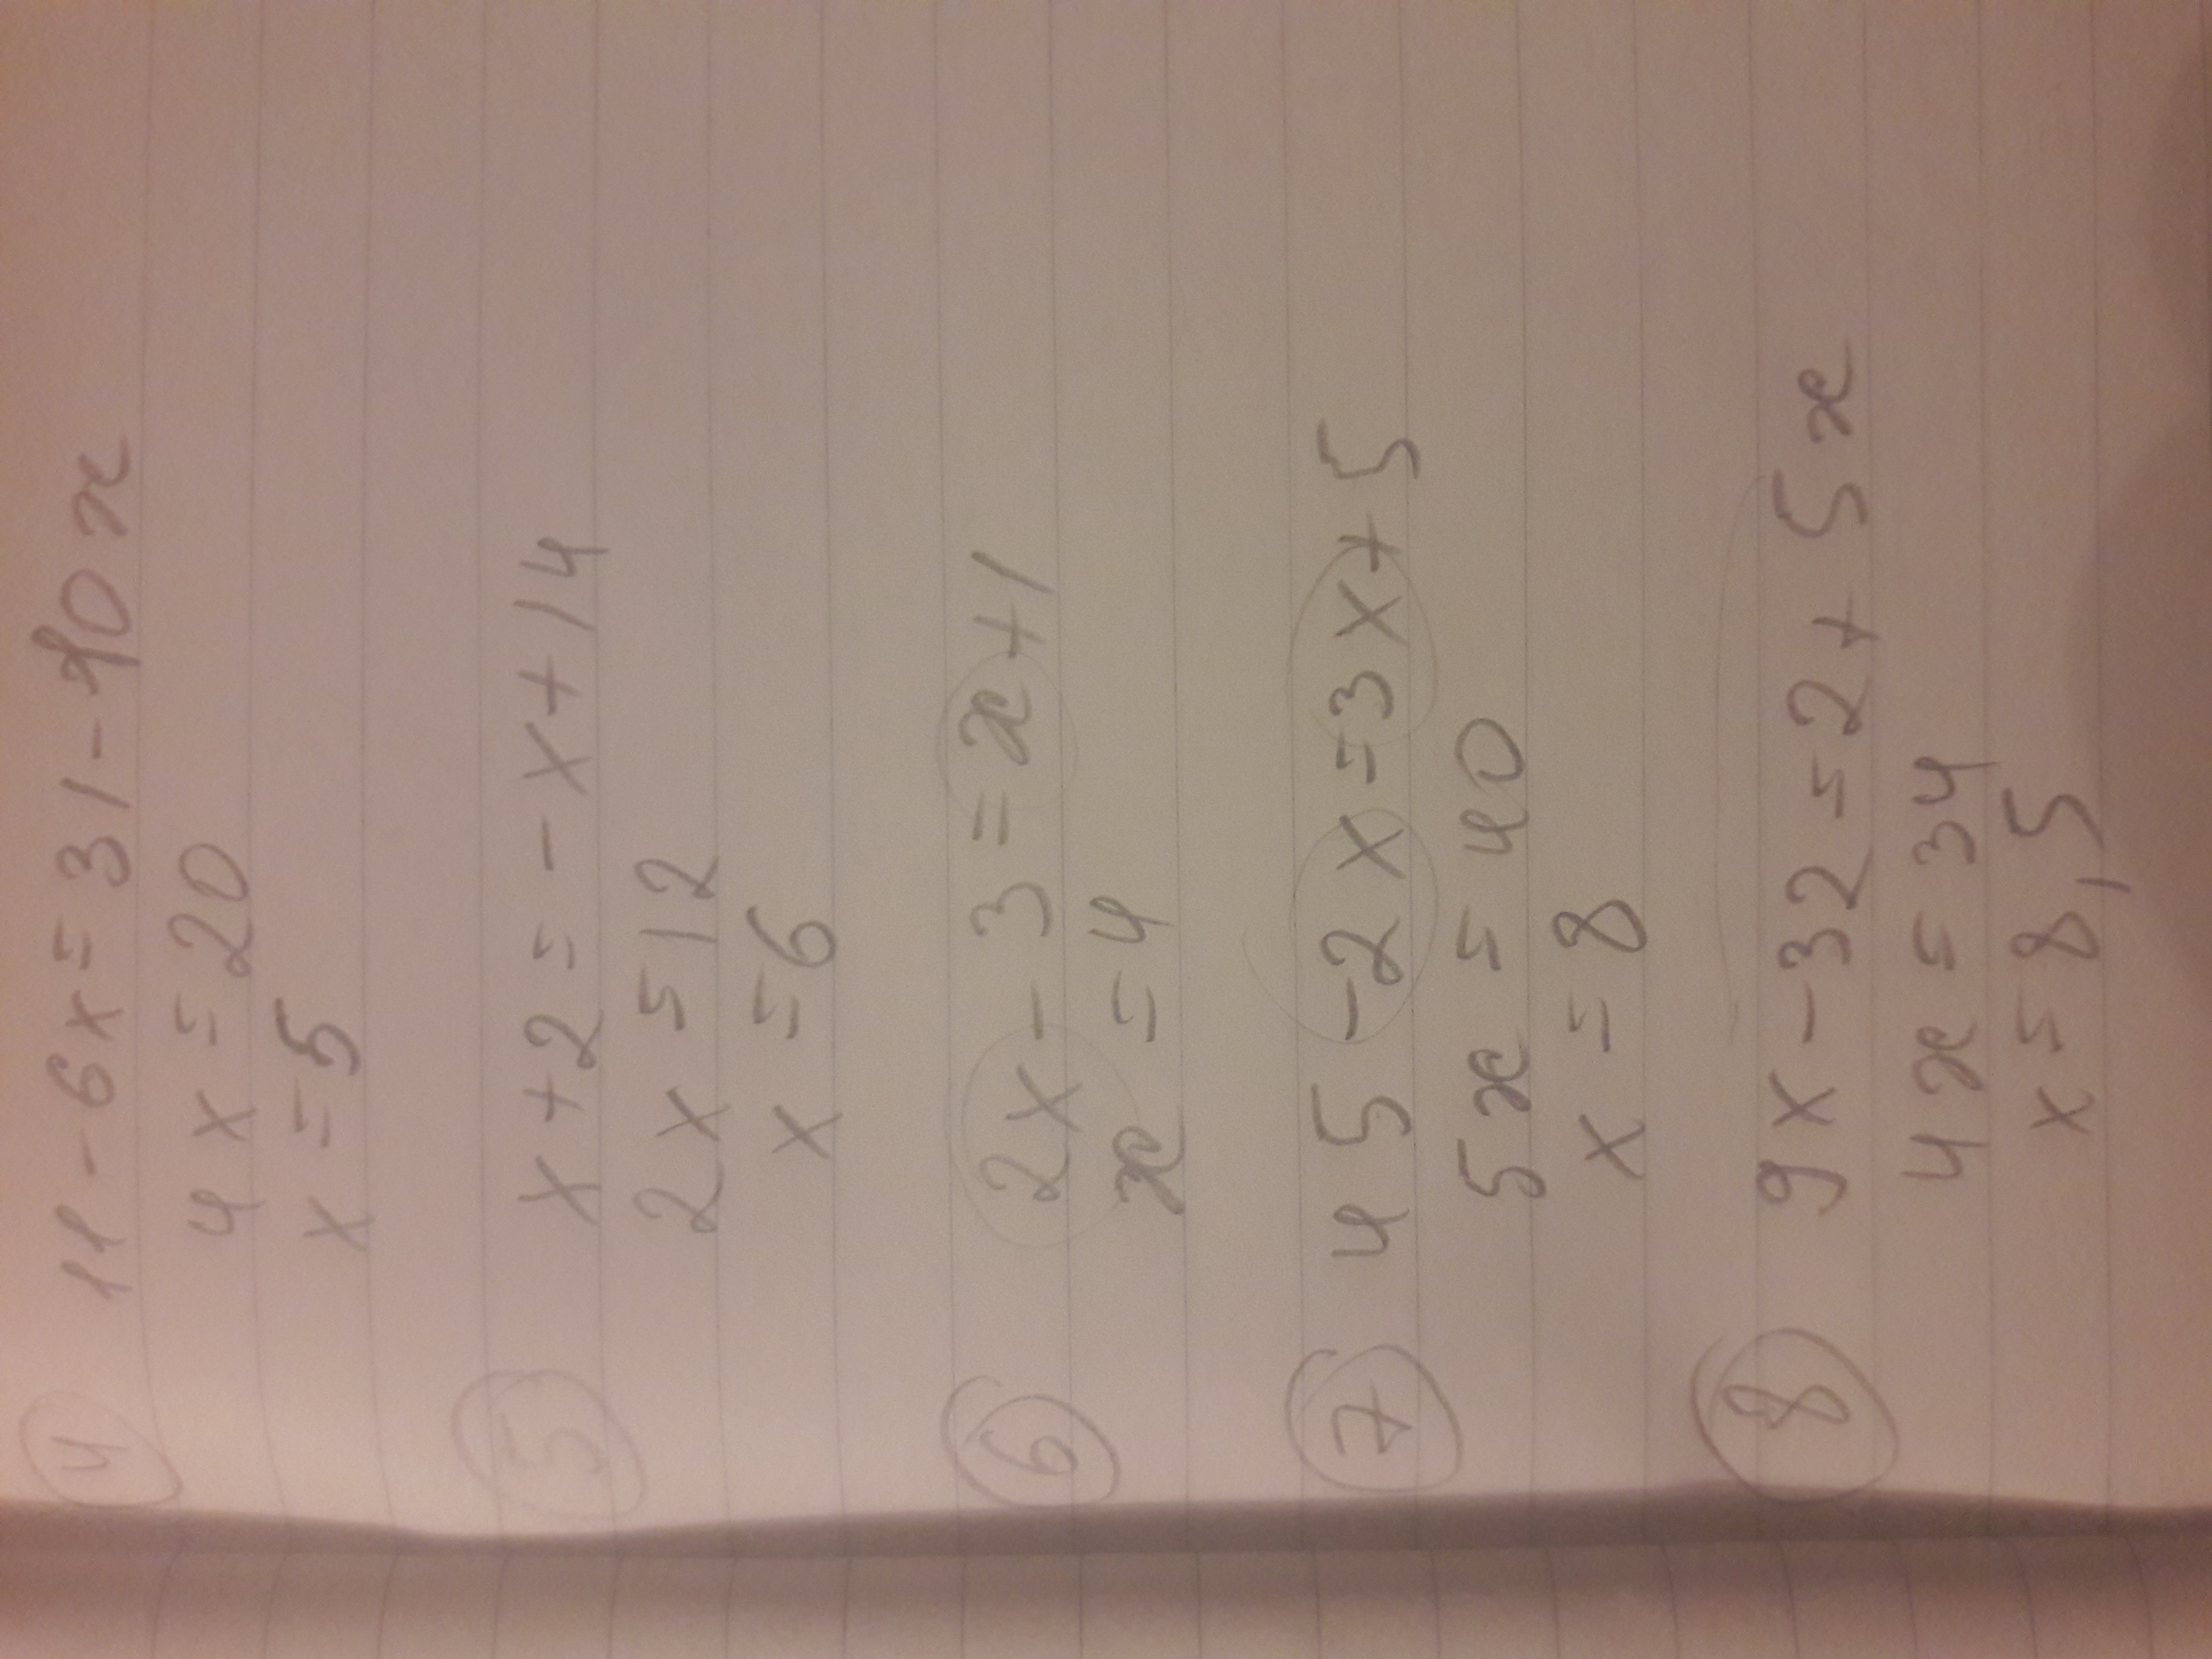 4 11-6x=31-10x
4x=20
x=5
5 x+2=-x+14
2x=12
x=6
6 2x-3=x+1
x=4
7 45-2x=3x+5
5x=40
x=8
8 9x-32=2+5x
4x=34
x=8,5